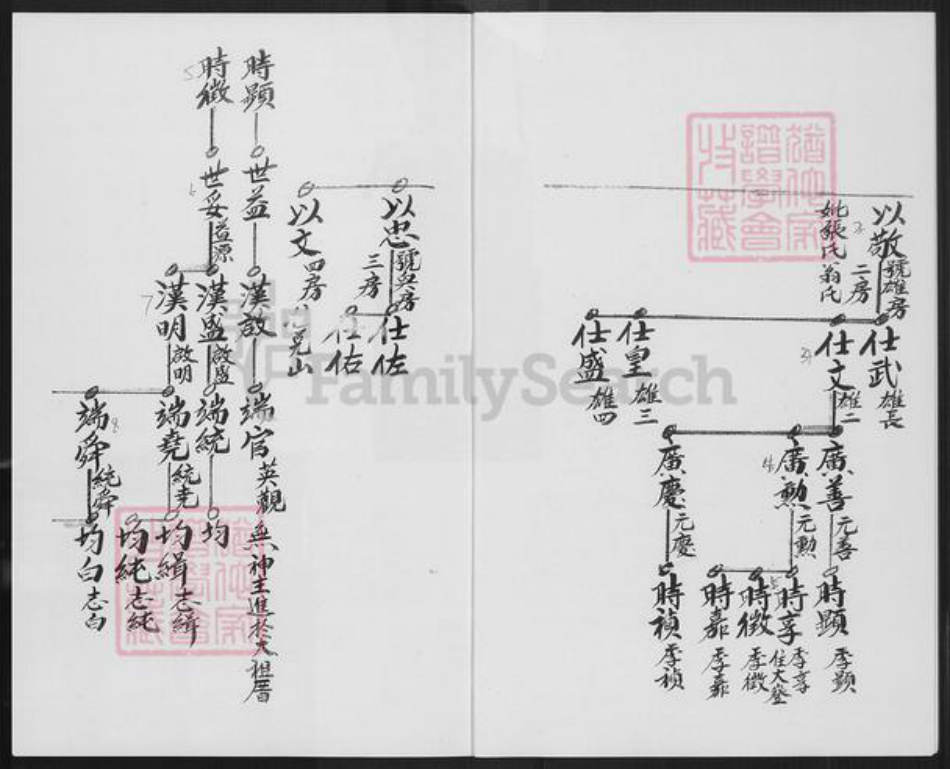 以敬 號雄房
二房
妣張氏 翁氏
仕武 雄長
仕文 雄二
仕皇 雄三
仕盛 雄四
廣善 元善
廣勲 元勲
廣慶 元慶
時顕 季顕
時享 季享
住大登
時徵 季徵
時嘉 季嘉
時禎 季禎
以忠
三房
仕佐
仕佑
以文 四房
時顕
世益
漢啟
端官 英觀
無神主進於大祖厝
時徵
世妥 益源
漢盛 啟盛
端統
均
漢明 啟明
端堯 統堯
均緝 志緝
均純 志純
端舜 統舜
均白 志白
FamilySearch